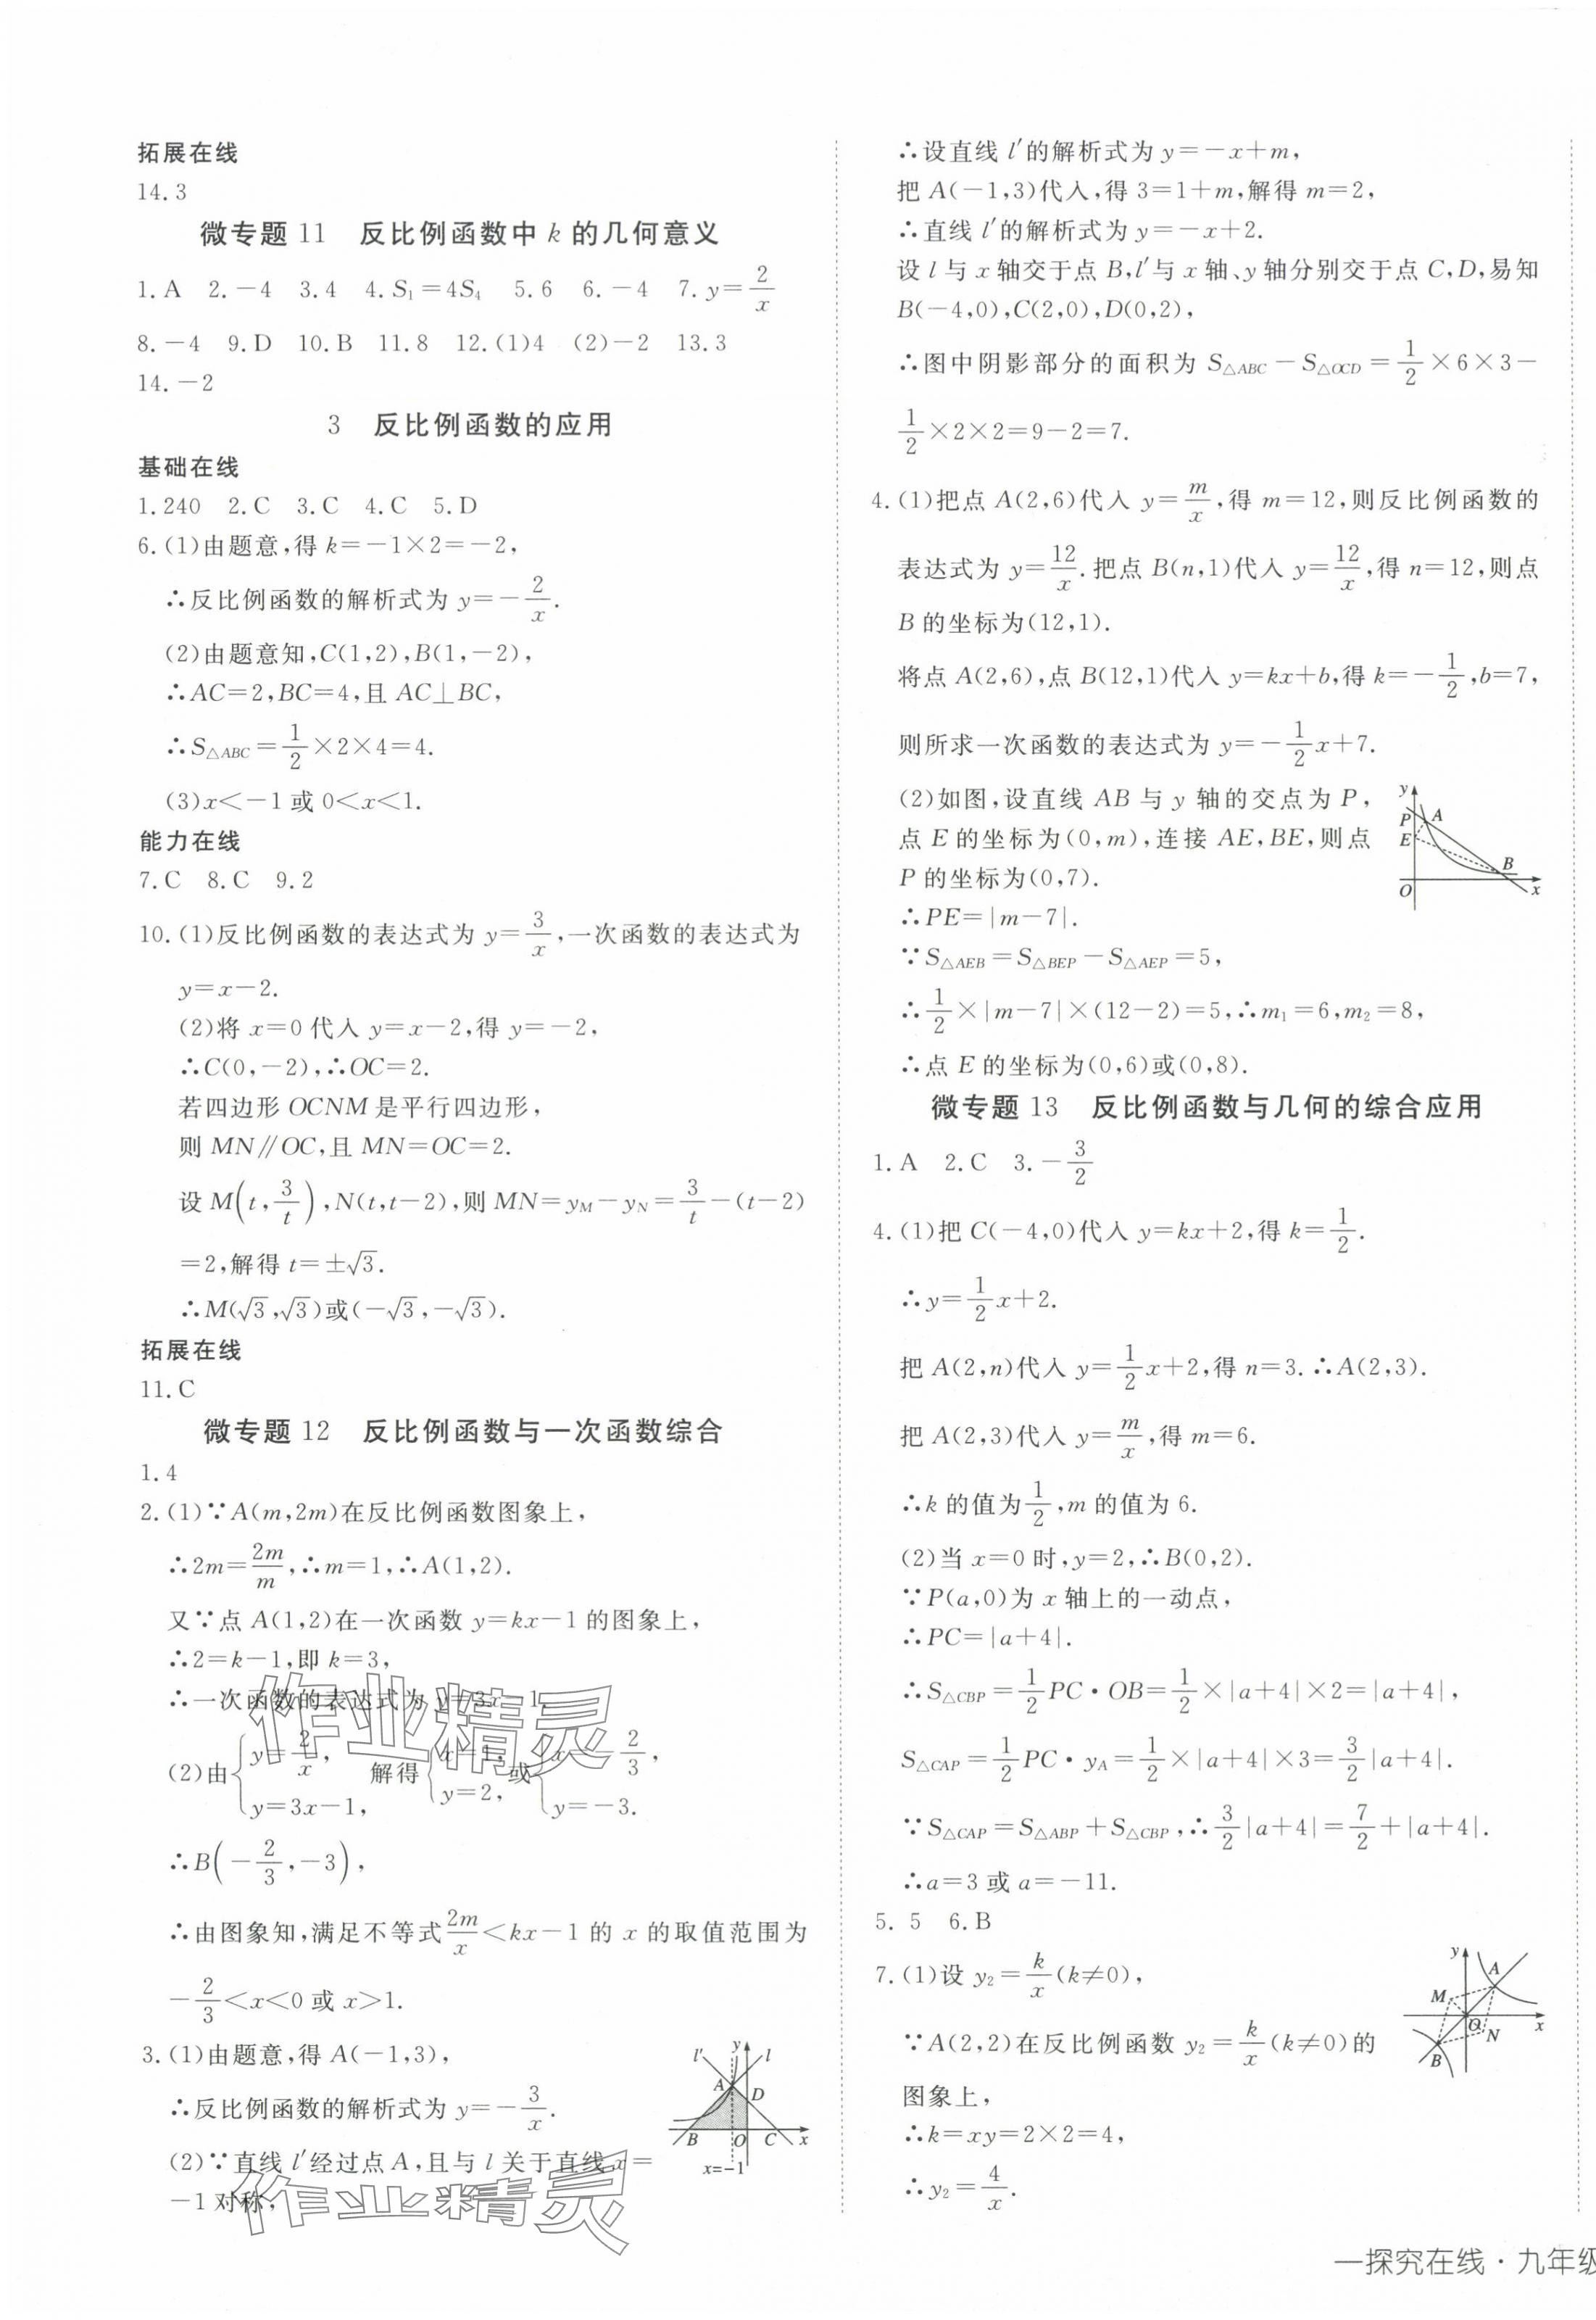 拓展在线
14.3
微专题 11　反比例函数中 k 的几何意义
1.A　2.－4　3.4　4.S₁＝4S₄　5.6　6.－4　7.y＝2/x
8.－4　9.D　10.B　11.8　12.(1)4　(2)－2　13.3
14.－2
3　反比例函数的应用
基础在线
1.240　2.C　3.C　4.C　5.D
6.(1)由题意,得 k＝－1×2＝－2,
∴反比例函数的解析式为 y＝－2/x.
(2)由题意知,C(1,2),B(1,－2),
∴AC＝2,BC＝4,且 AC⊥BC,
∴S△ABC＝1/2×2×4＝4.
(3)x＜－1 或 0＜x＜1.
能力在线
7.C　8.C　9.2
10.(1)反比例函数的表达式为 y＝3/x,一次函数的表达式为
y＝x－2.
(2)将 x＝0 代入 y＝x－2,得 y＝－2,
∴C(0,－2),∴OC＝2.
若四边形 OCNM 是平行四边形,
则 MN∥OC,且 MN＝OC＝2.
设 M(t,3/t),N(t,t－2),则 MN＝yM－yN＝3/t－(t－2)
＝2,解得 t＝±√3.
∴M(√3,√3)或(－√3,－√3).
拓展在线
11.C
微专题 12　反比例函数与一次函数综合
1.4
2.(1)∵A(m,2m)在反比例函数图象上,
∴2m＝2m/m,∴m＝1,∴A(1,2).
又∵点 A(1,2)在一次函数 y＝kx－1 的图象上,
∴2＝k－1,即 k＝3,
∴一次函数的表达式为 y＝3x－1.
(2)由{y＝2/x, y＝3x－1, 解得{x＝1, y＝2, 或{x＝－2/3, y＝－3.
∴B(－2/3,－3),
∴由图象知,满足不等式2m/x＜kx－1 的 x 的取值范围为
－2/3＜x＜0 或 x＞1.
3.(1)由题意,得 A(－1,3),
∴反比例函数的解析式为 y＝－3/x.
(2)∵直线 l′经过点 A,且与 l 关于直线 x＝
－1 对称,
l′ y l A D B O C x x=-1
作业精灵
作业精灵
∴设直线 l′的解析式为 y＝－x＋m,
把 A(－1,3)代入,得 3＝1＋m,解得 m＝2,
∴直线 l′的解析式为 y＝－x＋2.
设 l 与 x 轴交于点 B,l′与 x 轴、y 轴分别交于点 C,D,易知
B(－4,0),C(2,0),D(0,2),
∴图中阴影部分的面积为 S△ABC－S△OCD＝1/2×6×3－
1/2×2×2＝9－2＝7.
4.(1)把点 A(2,6)代入 y＝m/x,得 m＝12,则反比例函数的
表达式为 y＝12/x.把点 B(n,1)代入 y＝12/x,得 n＝12,则点
B 的坐标为(12,1).
将点 A(2,6),点 B(12,1)代入 y＝kx＋b,得 k＝－1/2,b＝7,
则所求一次函数的表达式为 y＝－1/2x＋7.
(2)如图,设直线 AB 与 y 轴的交点为 P,
点 E 的坐标为(0,m),连接 AE,BE,则点
P 的坐标为(0,7).
y P A E B O x
∴PE＝|m－7|.
∵S△AEB＝S△BEP－S△AEP＝5,
∴1/2×|m－7|×(12－2)＝5,∴m₁＝6,m₂＝8,
∴点 E 的坐标为(0,6)或(0,8).
微专题 13　反比例函数与几何的综合应用
1.A　2.C　3.－3/2
4.(1)把 C(－4,0)代入 y＝kx＋2,得 k＝1/2.
∴y＝1/2x＋2.
把 A(2,n)代入 y＝1/2x＋2,得 n＝3.∴A(2,3).
把 A(2,3)代入 y＝m/x,得 m＝6.
∴k 的值为1/2,m 的值为 6.
(2)当 x＝0 时,y＝2,∴B(0,2).
∵P(a,0)为 x 轴上的一动点,
∴PC＝|a＋4|.
∴S△CBP＝1/2PC·OB＝1/2×|a＋4|×2＝|a＋4|,
S△CAP＝1/2PC·yA＝1/2×|a＋4|×3＝3/2|a＋4|.
∵S△CAP＝S△ABP＋S△CBP,∴3/2|a＋4|＝7/2＋|a＋4|.
∴a＝3 或 a＝－11.
5. 5　6.B
7.(1)设 y₂＝k/x(k≠0),
∵A(2,2)在反比例函数 y₂＝k/x(k≠0)的
图象上,
y A M O N x B
∴k＝xy＝2×2＝4,
∴y₂＝4/x.
一探究在线·九年级